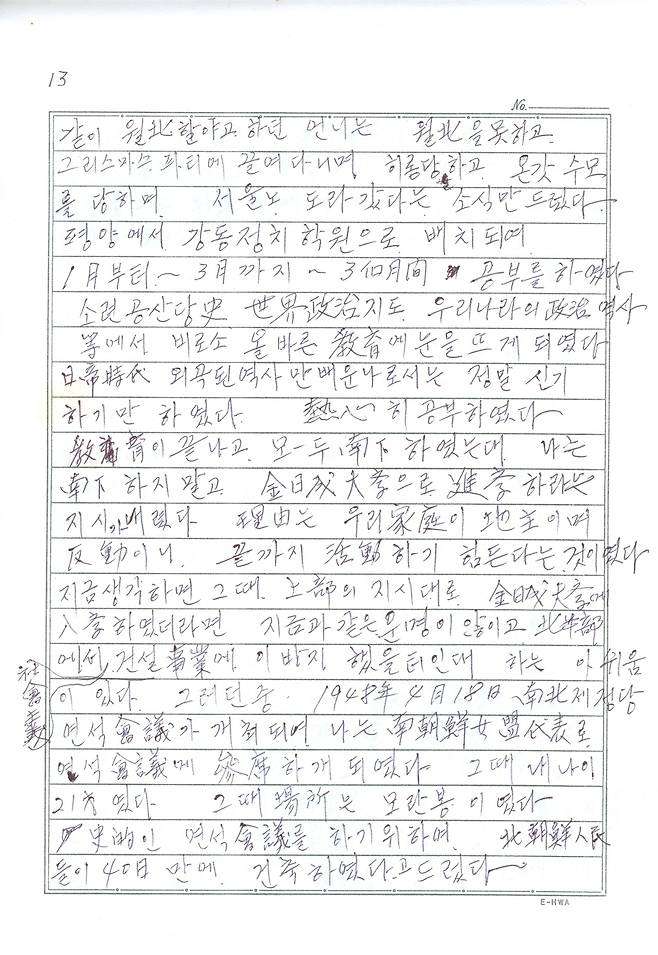 13
No.
같이 월北할야고 하던 언니는 월北을 못하고
그리스마스 파티에 끌여다니며 히롱당하고 온갓 수모
를 당하며 서울노 도라갔다는 소식만 드렀다
평양에서 강동정치학원으로 배치되여
1月부터~ 3月까지~ 3個月間 공부를 하였다
소련공산당史 世界政治지도 우리나라의 政治역사
等에서 비로소 올바른 敎育에 눈을 뜨게 되였다
日帝時代 외곡된 역사만 배운 나로서는 정말 신기
하기만 하였다. 熱心히 공부하였다
敎育이 끝나고 모두 南下하였는대 나는
南下하지 말고 金日成大學으로 進學하라는
지시가 내렸다 理由는 우리 家庭이 地主이며
反動이니 끝까지 活動하기 힘든다는 것이였다
지금 생각하면 그때 上部의 지시대로 金日成大學에
入學하였더라면 지금과 같은 운명이 않이고 北半部
에서 건설事業에 이바지 했을터인대 하는 아쉬움
社會主義
이 있다. 그러던 중 1948年 4月18日 南北제정당
연석會議가 개최되여 나는 南朝鮮女盟代表로
연석會議에 參席하개 되였다 그때 내 나이
21才였다 그때 場所는 모란봉이였다
史的인 연석會議를 하기 위하여 北朝鮮人民
들이 40日만에 건축하였다고 드렀다
E-HWA